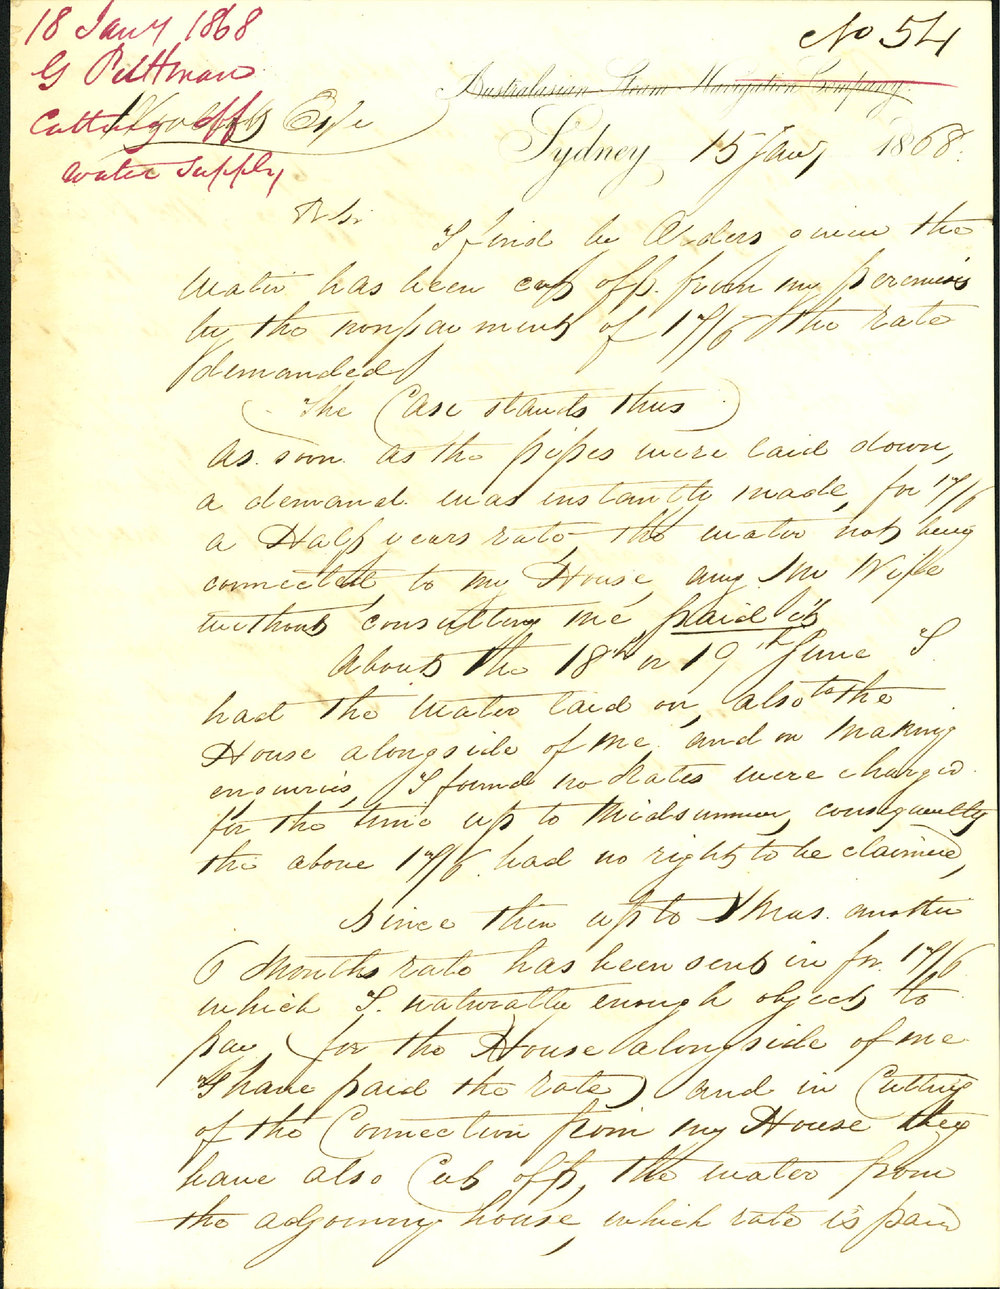 18 Jany 1868
G Pittman
Cutting off
water supply
No 54
Australasian Steam Navigation Company
Esqe
Sydney 15 Jany 1868.
Sir
I find by Orders given the
Water has been cut off from my premises
by the nonpayment of 17/6 the rate
demanded
(The Case stands thus)
As soon as the pipes were laid down,
a demand was instantly made, for 17/6
a Half years rate the water not being
connected, to my House, any My Wife
without consulting me paid it
About the 18th or 19th June I
had the Water laid on, also to the
House alongside of me and on making
enquiries, I found no Rates were charged
for the time up to Midsummer, consequently
the above 17/6 had no right to be claimed,
Since then up to Xmas another
6 Months rate has been sent in for 17/6
which I naturally enough object to
pay (for the House alongside of me
I have paid the rate) and in Cutting
of the Connection from my House they
have also Cut off, the water from
the adjoining house, which rate is paid